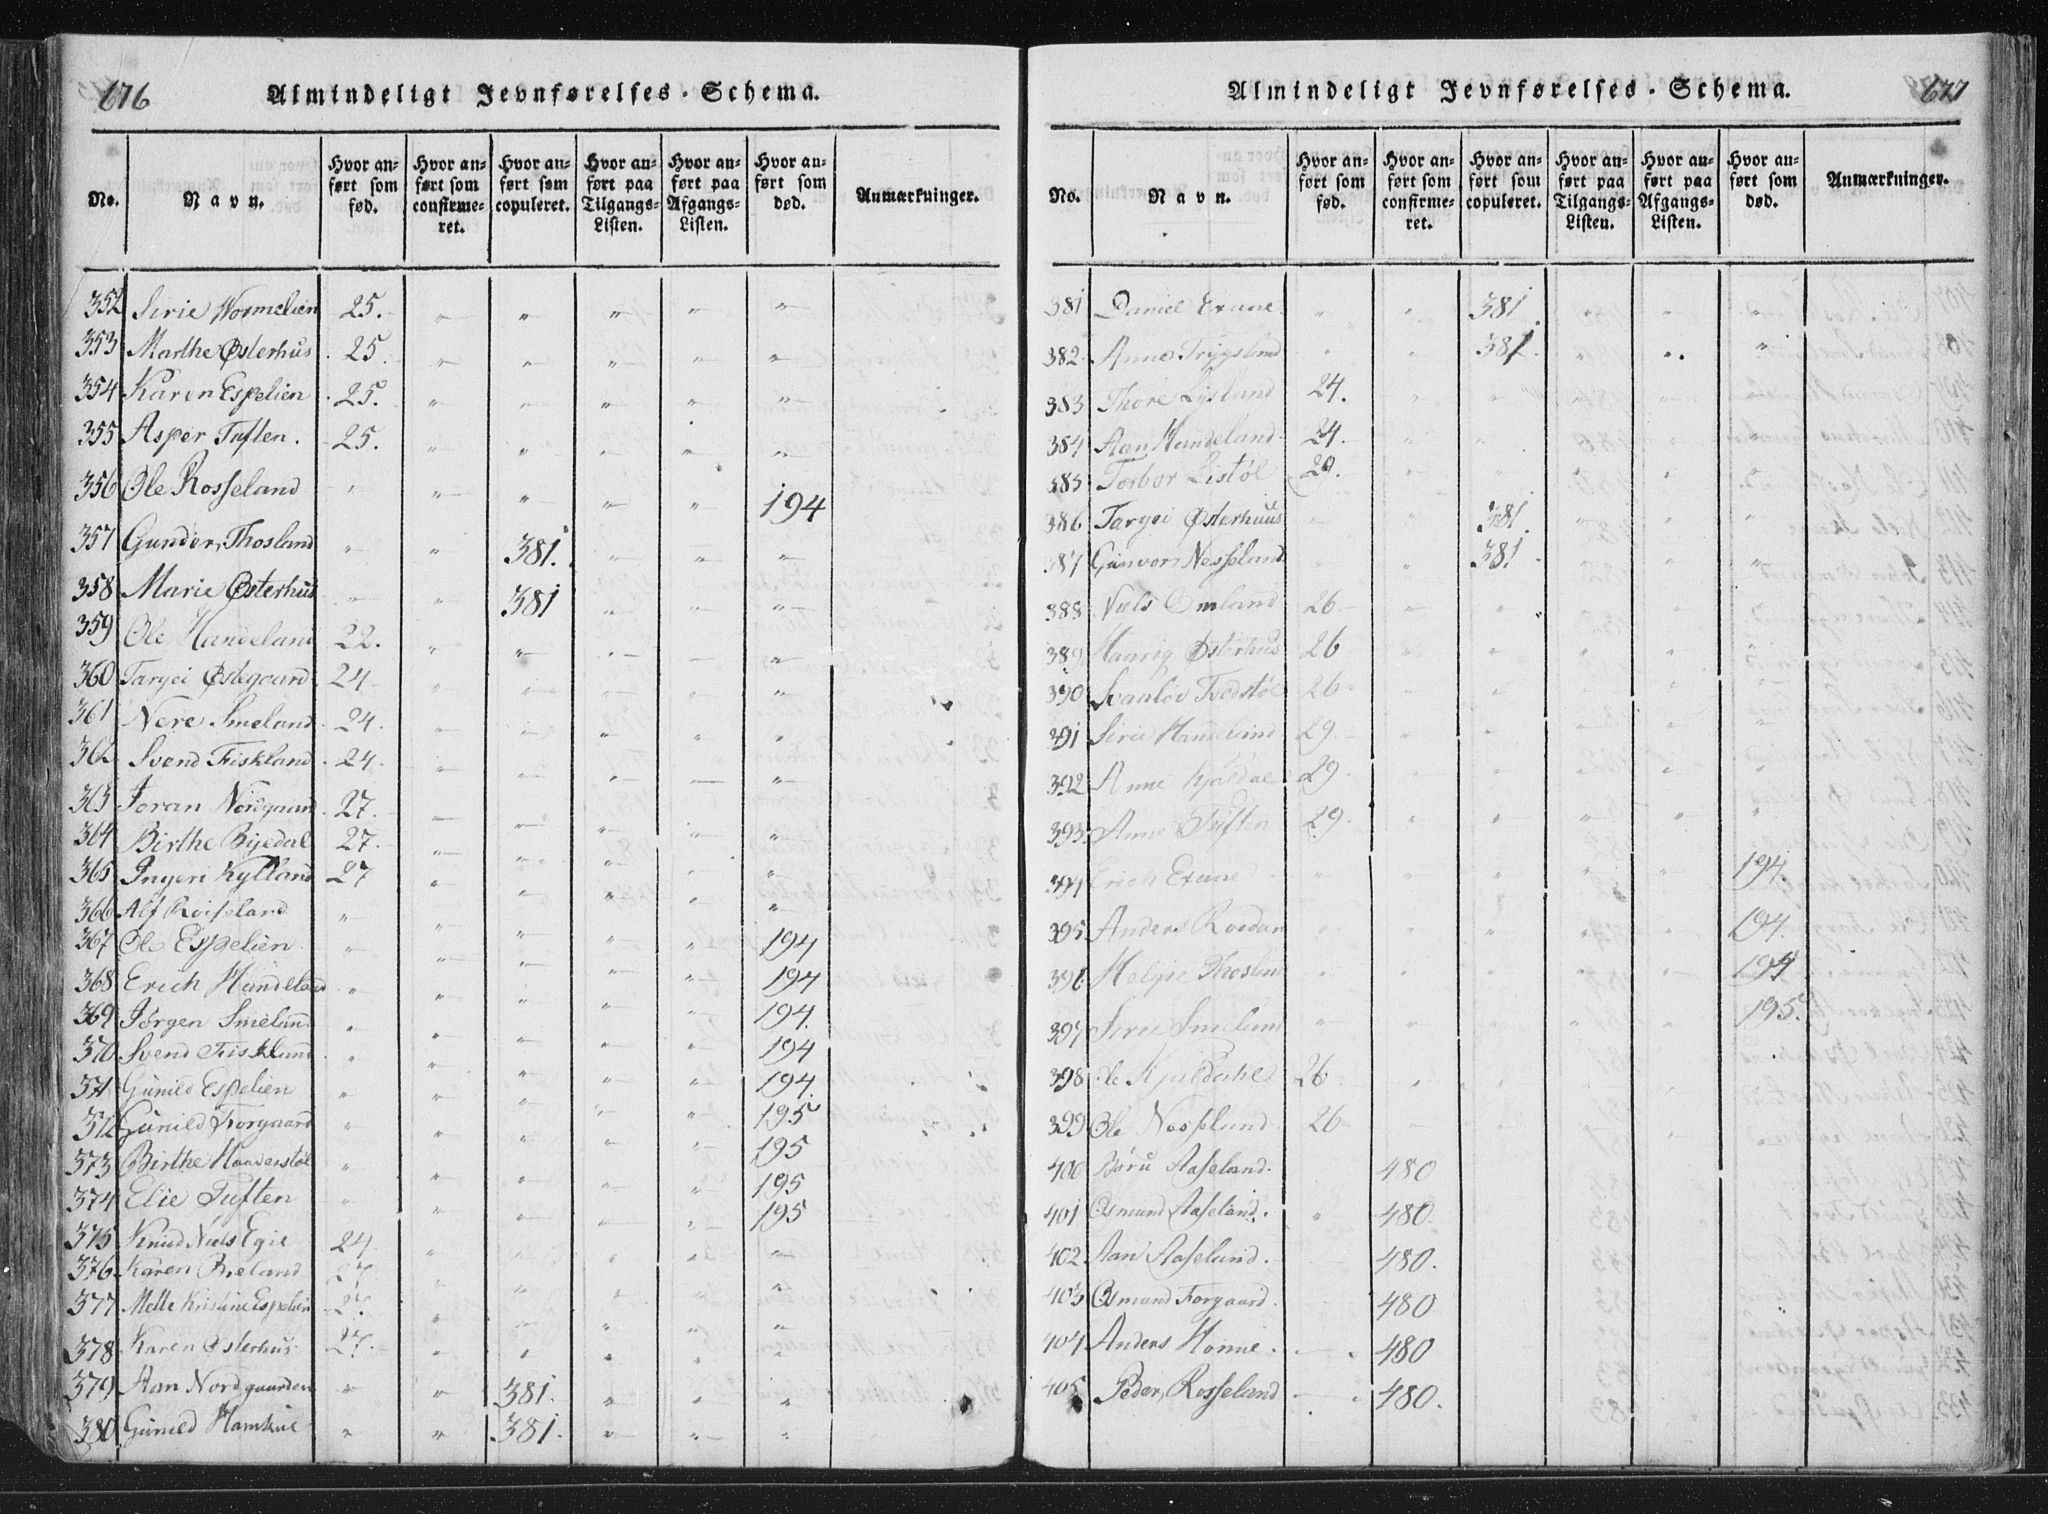 676
Almindeligt Jevnførelses-Schema.
No. Navn. Hvor anført som fød. Hvor anført som confirmeret. Hvor anført som copuleret. Hvor anført paa Tilgangs-Listen. Hvor anført paa Afgangs-Listen. Hvor anført som død. Anmærkninger.
352 Sirie Wormelien 25. " " " " "
353 Marthe Østerhus 25. " " " " "
354 Karen Espelien 25. " " " " "
355 Asper Tuften. 25. " " " " "
356 Ole Rosseland " " " " " 194
357 Gunder Thosland " " 381. " " "
358 Marie Østerhus " " 381 " " "
359 Ole Handeland 22. " " " " "
360 Taryei Østegaard 24 " " " " "
361 Nere Smeland 24. " " " " "
362 Svend Fiskland 24. " " " " "
363 Joran Nordgaard 27. " " " " "
364 Birthe Byedal 27. " " " " "
365 Ingeri Kylland 27 " " " " "
366 Alf Roiseland "
367 Ole Espelien " " " " " 194
368 Erich Handeland " " " " " 194
369 Jørgen Smeland " " " " " 194.
370 Svend Fiskland " " " " " 194
371 Gunild Espelien " " " " " 194.
372 Gunild Forgaard " " " " " 195
373 Birthe Haaverstøl " " " " " 195
374 Elie Tuften " " " " " 195
195
375 Knud Niels Egie 24 " " " " "
376 Karen Røeland 27. " " " " "
377 Mette Kristine Espelien 27. " " " " "
378 Karen Østerhus 27. " " " " "
379 Aan Nordgaarden " " 381. " " "
380 Gunild Homkie " " 381. " " "
677
Almindeligt Jevnførelses-Schema.
No. Navn. Hvor anført som fød. Hvor anført som confirmeret. Hvor anført som copuleret. Hvor anført paa Tilgangs-Listen. Hvor anført paa Afgangs-Listen. Hvor anført som død. Anmærkninger.
381 Daniel Exaae " " 381 " " "
382 Anne Trygsland " " 381. " " "
383 Thore Lysland 24. " " " " "
384 Aan Handeland 24. " " " " "
385 Torbor Listøl 29. " " " " "
386 Taryei Østerhuus " " 381. " " "
387 Gunvor Nesseland " " 381 " " "
388 Niels Omland 26 " " " " "
389 Haavig Østerhus 26 " " " " "
390 Svaaløv Tvedstøl 26 " " " " "
391 Sirie Handeland 29. " " " " "
392 Anne Kjaldal 29. " " " " "
393 Anne Tuften 29. " " " " "
394 Erich Exaae " " " " " 194.
395 Anders " " " " " 194.
396 Helgie Thosland " " " " " 194
397 Sirie Smeland " " " " " 195.
398 Ole Kjaldahl 26 " " " " "
399 Ole Nesseland 26 " " " " "
400 Børu Aaseland. 480
401 Osmund Aaseland. " 480.
402 Aan Aaseland. 480.
403 Osmund Forgaard. 480
404 Anders Honne. 480
405 Peder Rosseland 480.